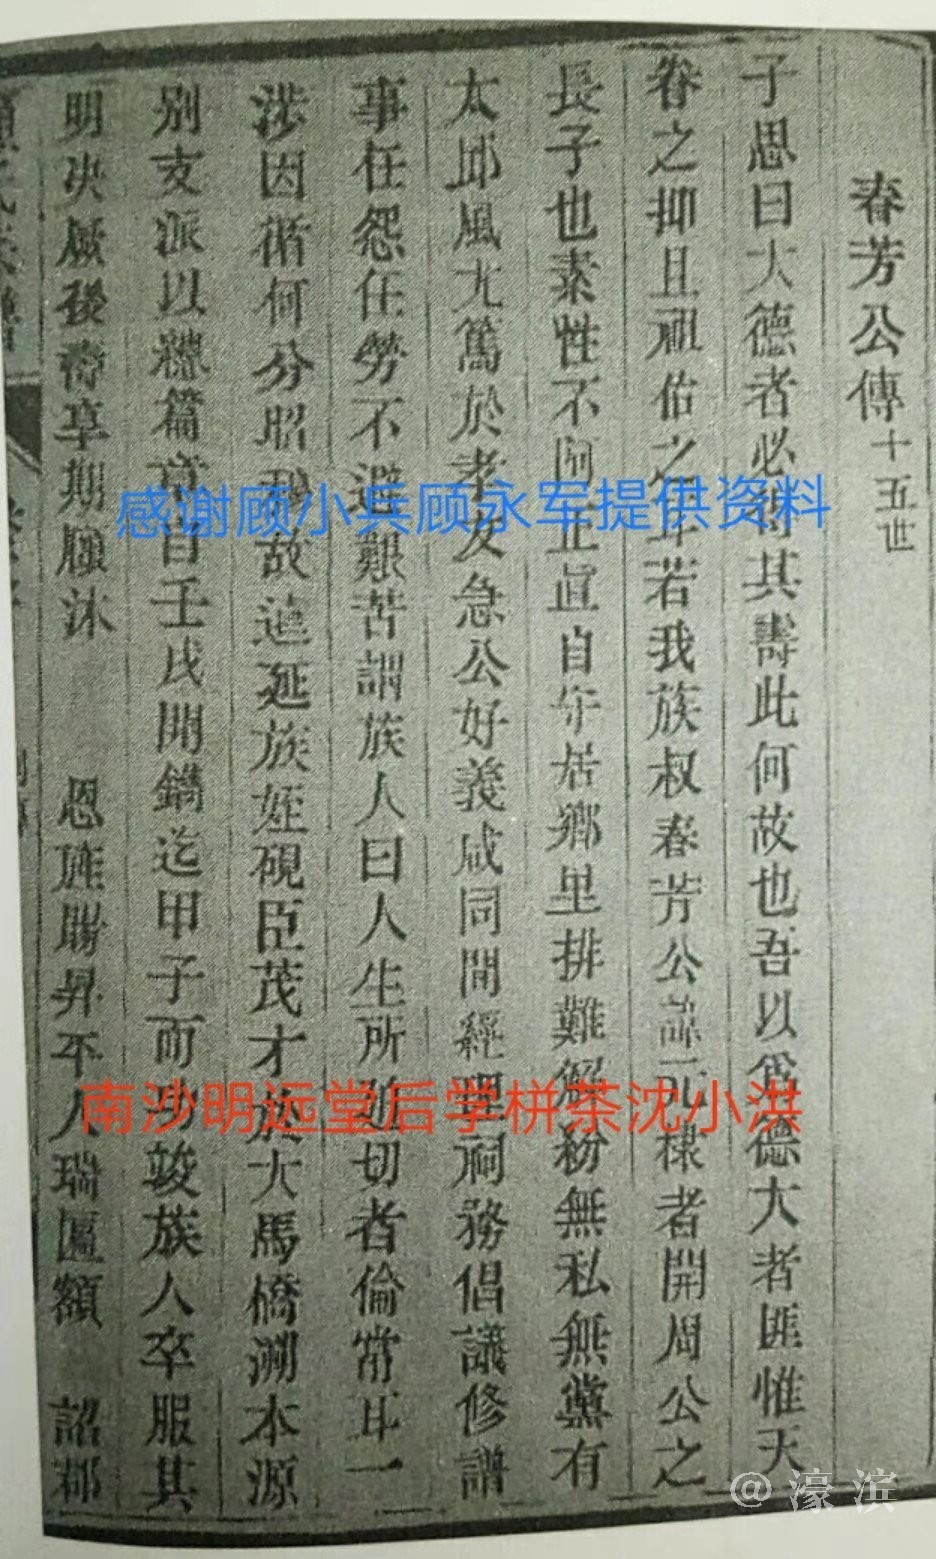 春芳公傳十五世
子思曰大德者必得其壽此何故也吾以爲德大者匪惟天
眷之抑且祖佑之耳若我族叔春芳公諱元棣者開周公之
長子也素性不阿正直自守居鄉里排難解紛無私無黨有
太邱風尤篤於孝友急公好義咸同間經理祠務倡議修譜
事任怨任勞不避艱苦謂族人曰人生所切者倫常耳一
涉因循何分昭穆故遣延族姪硯臣茂才於大馬橋溯本源
别支派以續篇章自壬戌開鐫迄甲子而功竣族人卒服其
明决厥後壽享期頤沐 恩旌賜昇平人瑞匾額 詔郡
感谢顾小兵顾永军提供资料
南沙明远堂后学栟茶沈小洪
@濠滨